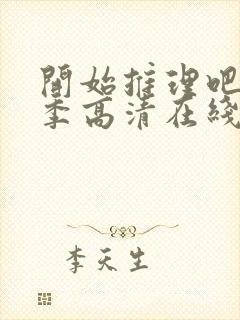 開始推理吧
季高清在綫
李天生